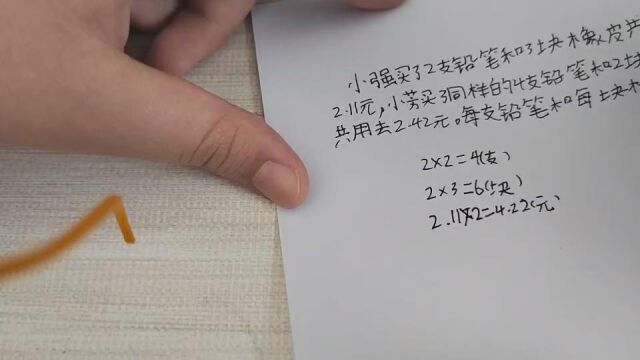 小强买了2支铅笔和3块橡皮共
2.11元,小芳买了同样的4支铅笔和2块
共用去2.42元。每支铅笔和每块
2×2=4(支)
2×3=6(块)
2.11×2=4.22(元)